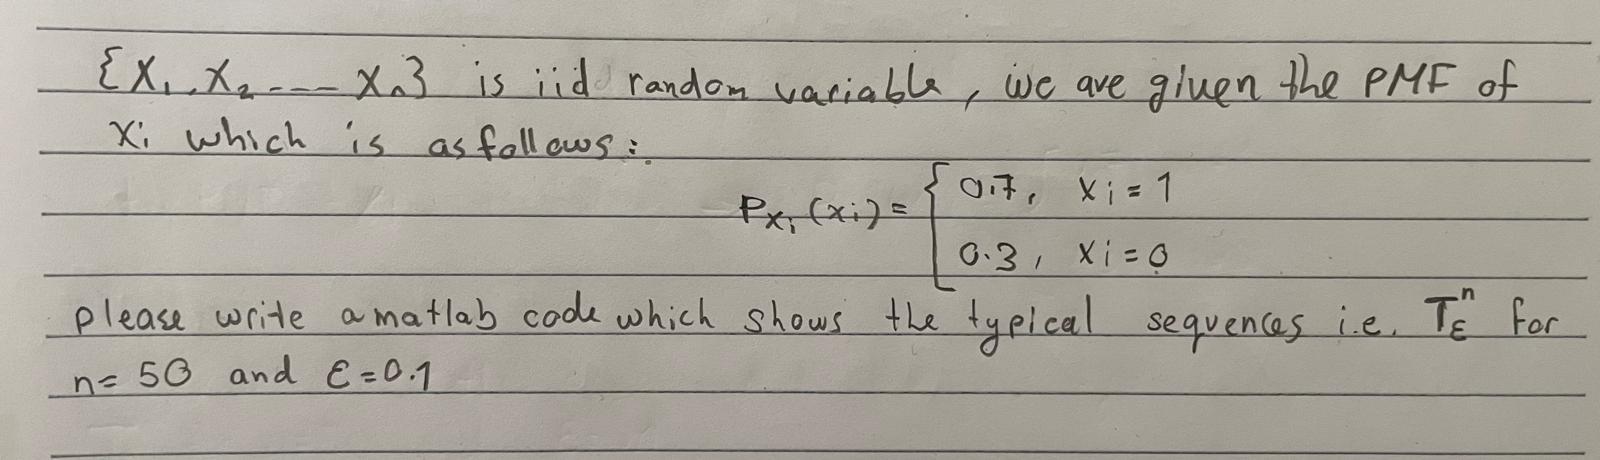 {X₁, X₂ --- Xₙ} is iid random variable, we are given the PMF of
Xi which is as follows:
P_Xi (xi) = { 0.7, xi = 1
0.3, xi = 0
please write a matlab code which shows the typical sequences i.e. T_ε^n for
n= 50 and ε=0.1